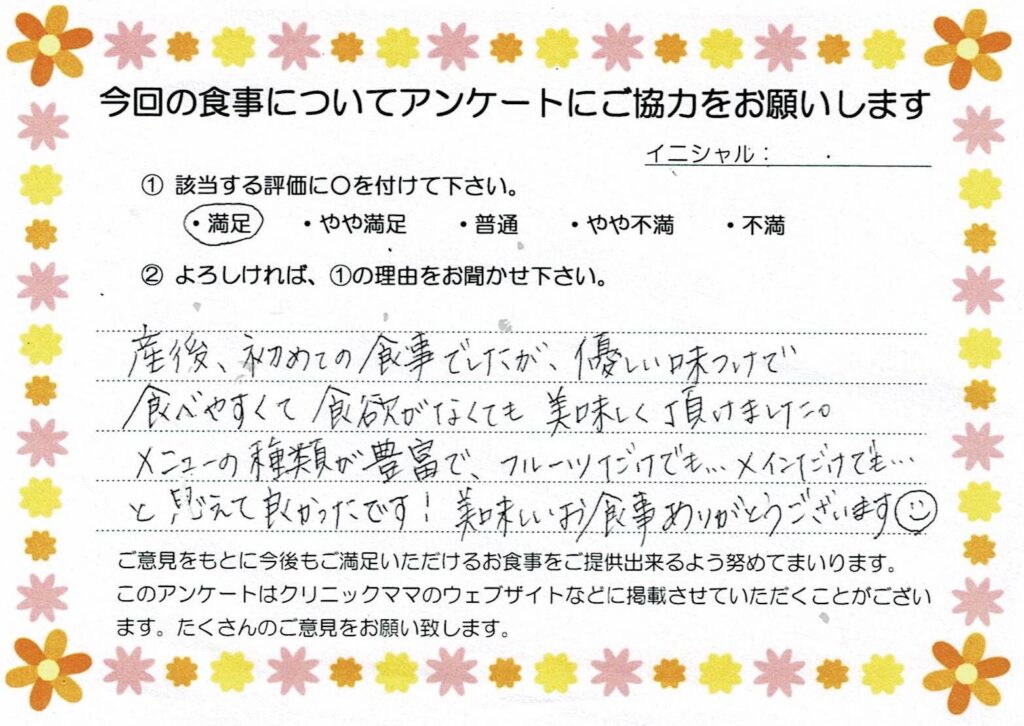 今回の食事についてアンケートにご協力をお願いします
イニシャル：　　・
① 該当する評価に〇を付けて下さい。
・満足　・やや満足　・普通　・やや不満　・不満
② よろしければ、①の理由をお聞かせ下さい。
産後、初めての食事でしたが、優しい味つけで
食べやすくて食欲がなくても美味しく頂けました。
メニューの種類が豊富で、フルーツだけでも…メインだけでも…
と思えて良かったです！美味しいお食事ありがとうございます
ご意見をもとに今後もご満足いただけるお食事をご提供出来るよう努めてまいります。
このアンケートはクリニックママのウェブサイトなどに掲載させていただくことがござい
ます。たくさんのご意見をお願い致します。